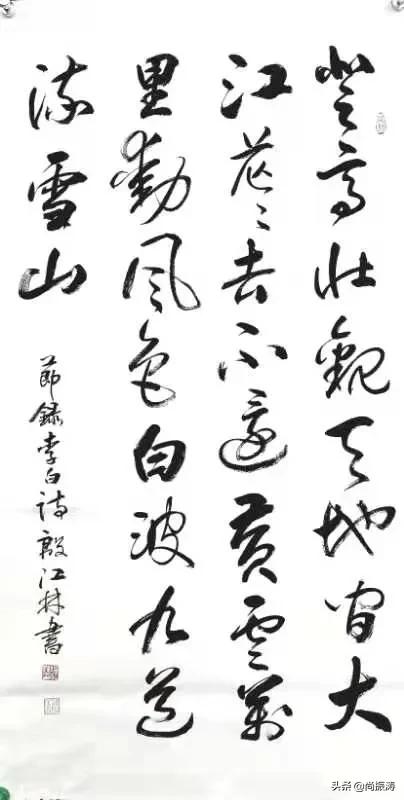 登高壮觀天地间大
江茫〻去不還黄雲萬
里動風色白波九道
流雪山
節録李白詩殷江林書
头条@尚振涛